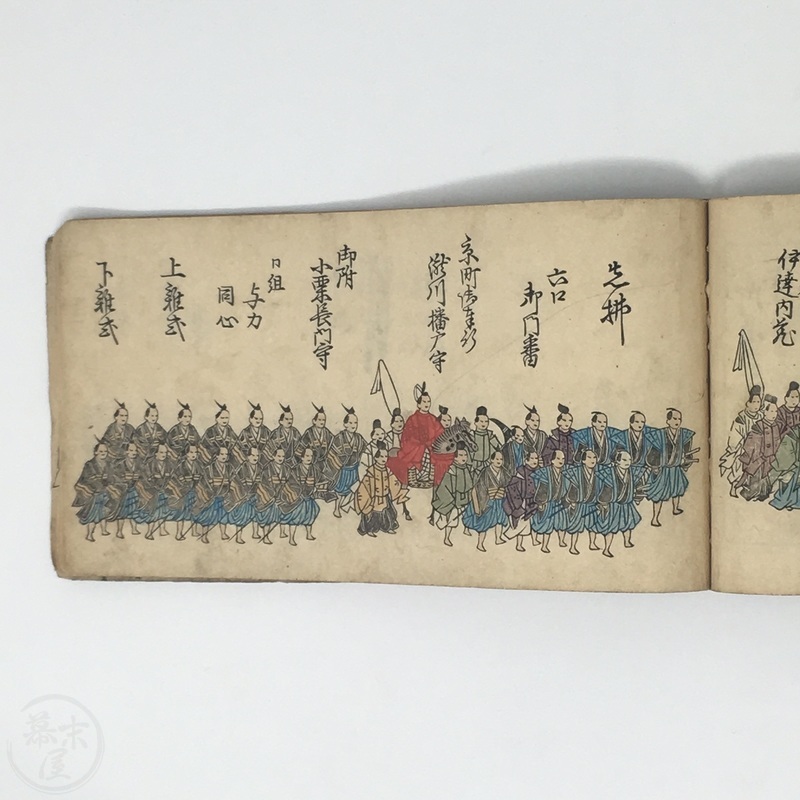 伊達内蔵
先拂
六口
御門番
京町御奉行
瀧川播广守
御附
小栗長門守
同組
与力
同心
上雜式
下雜式
幕末屋